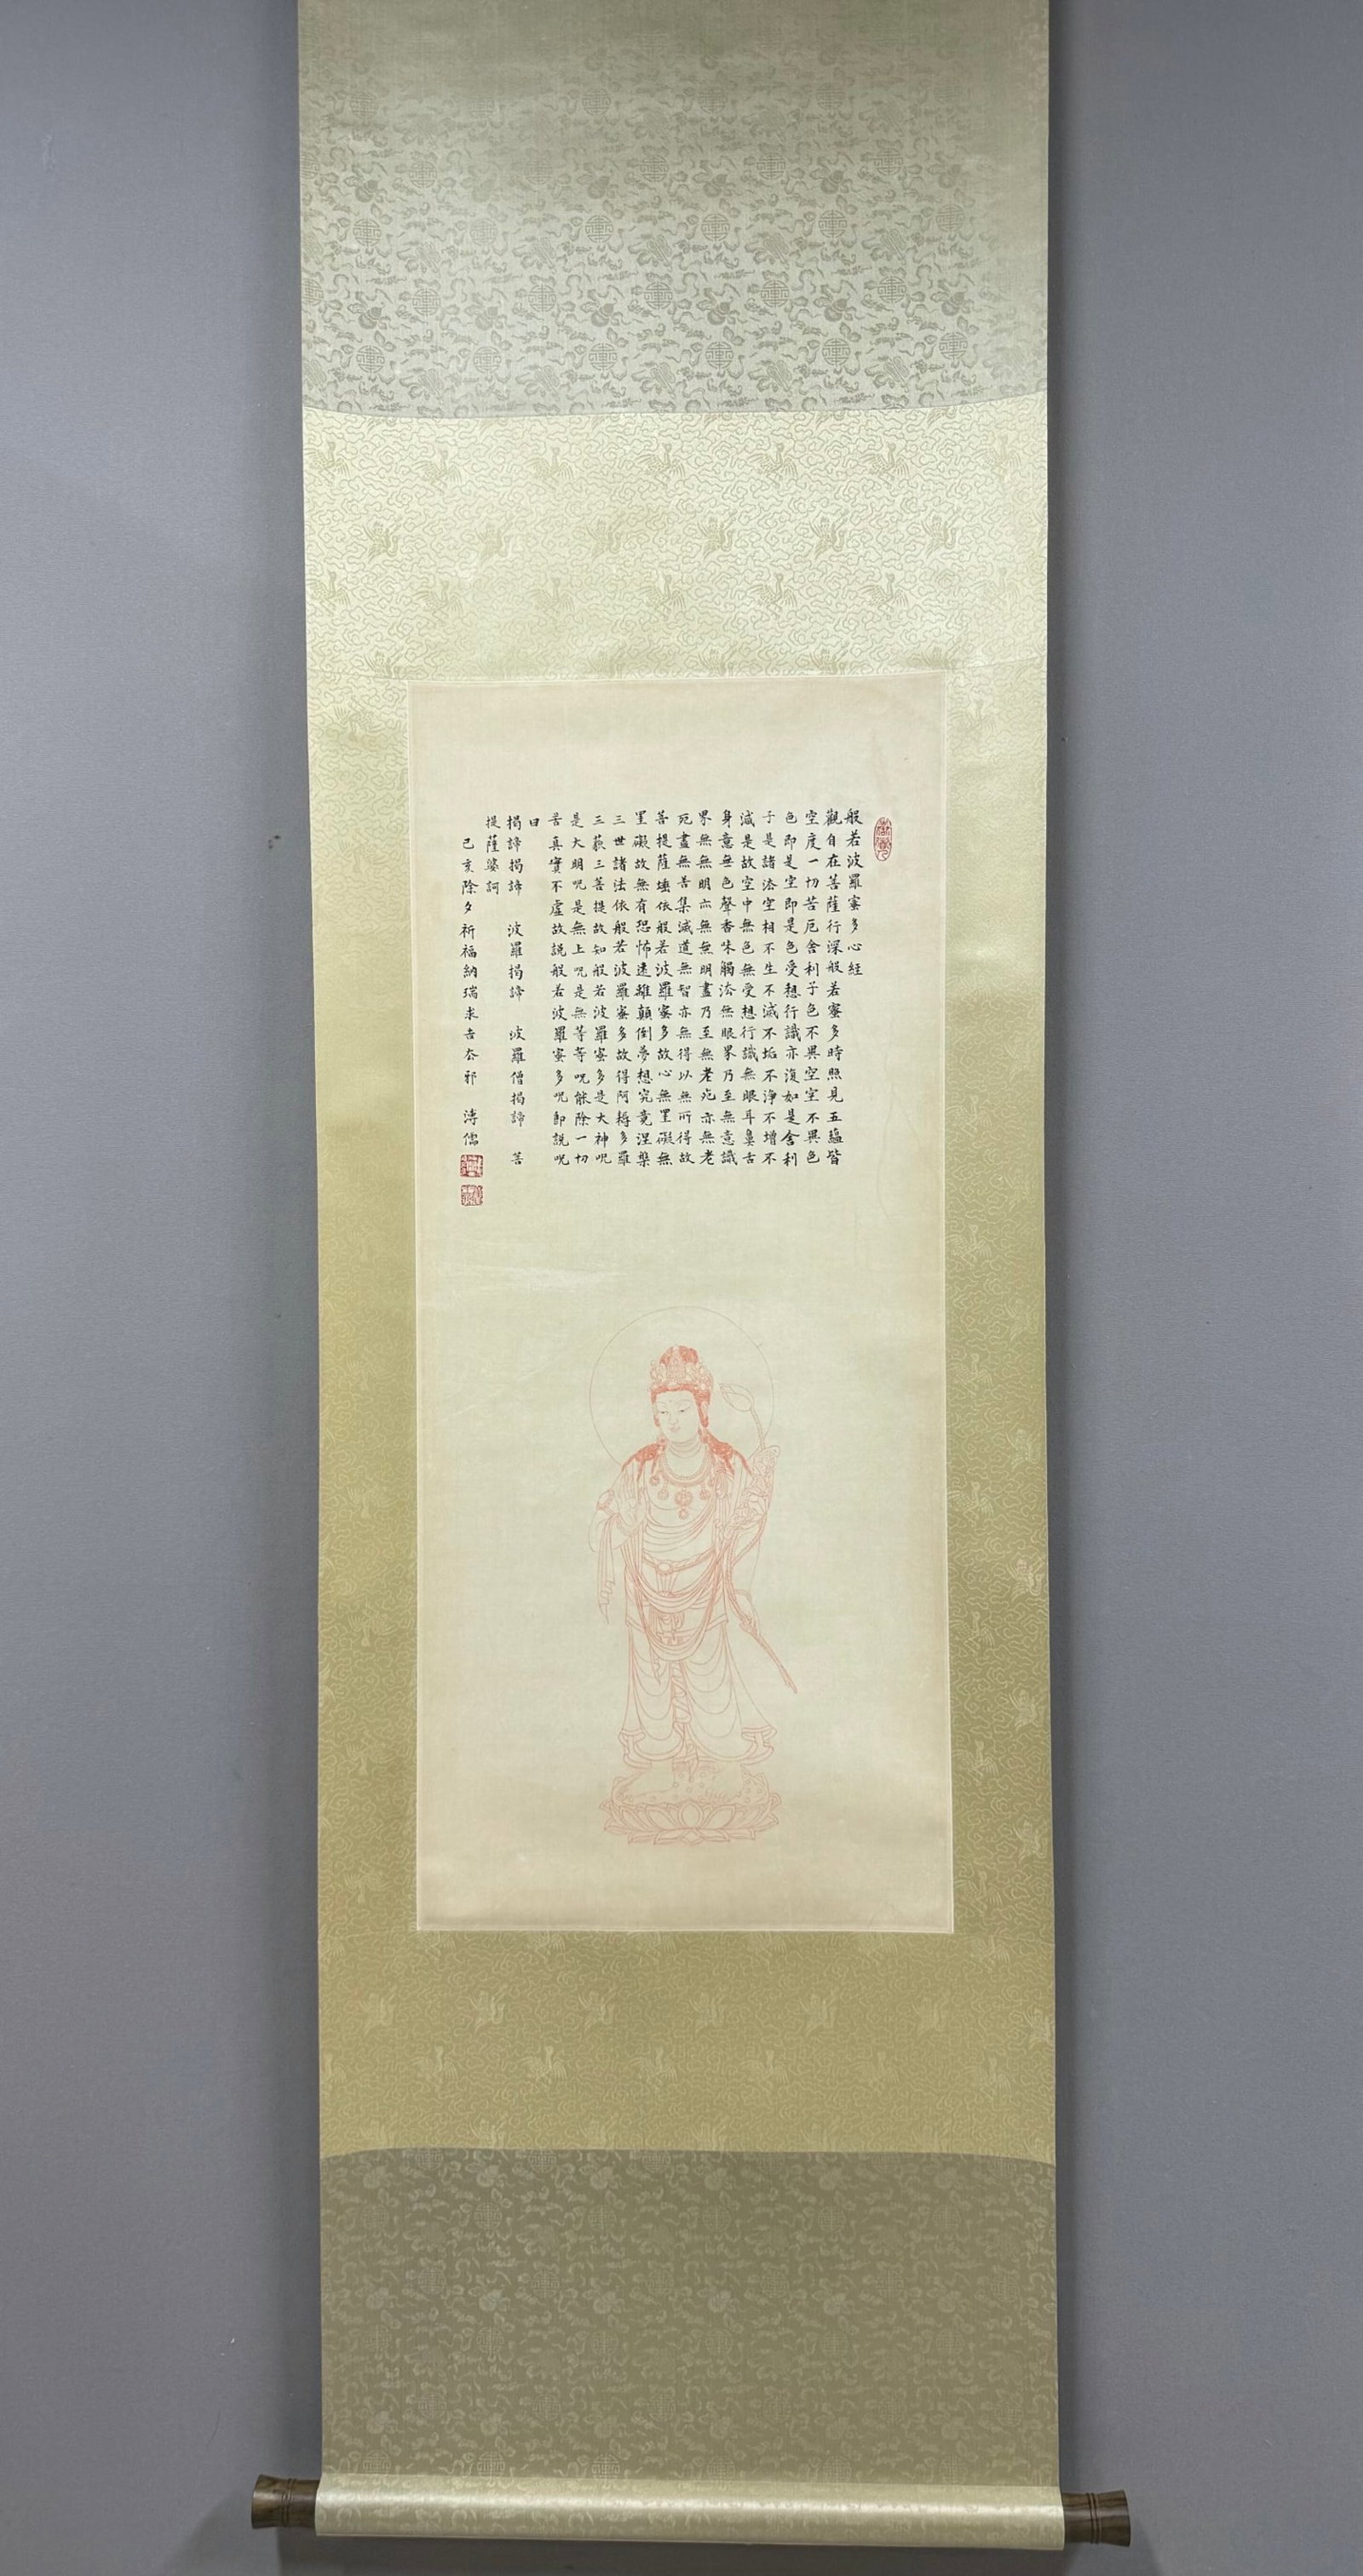 般若波羅蜜多心経
觀自在菩薩行深般若蜜多時照見五蘊皆
空度一切苦厄舍利子色不異空空不異色
色即是空即是色受想行識亦復如是舍利
子是諸法空相不生不滅不垢不淨不增不
滅是故空中無色無受想行識無眼耳鼻舌
身意無色聲香味觸法無眼界乃至無意識
界無無明亦無無明盡乃至無老死亦無老
死盡無苦集滅道無智亦無得以無所得故
菩提薩埵依般若波羅蜜多故心無罣礙無
罣礙故無有恐怖遠離顛倒夢想究竟涅槃
三世諸法依般若波羅蜜多故得阿耨多羅
三藐三菩提故知般若波羅蜜多是大神咒
是大明咒是無上咒是無等等咒能除一切
苦真實不虛故說般若波羅蜜多咒即說咒
曰
揭諦揭諦 波羅揭諦 波羅僧揭諦 菩
提薩婆訶
己亥除夕祈福納瑞求吉 溥儒